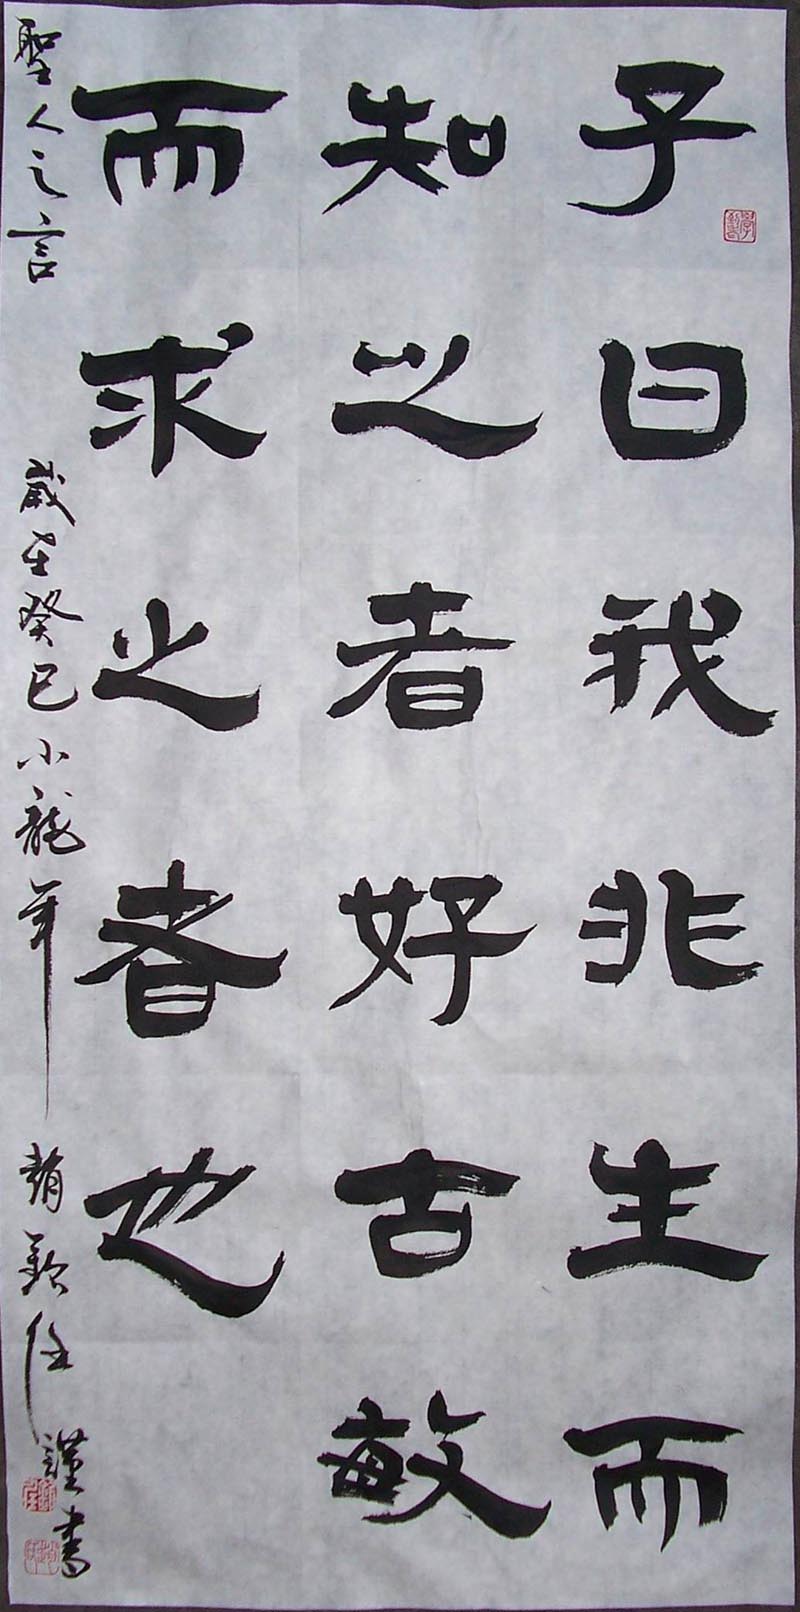 子曰我非生而
知之者好古敏
而求之者也
聖人之言
歲在癸巳小龍年
趙
謹書